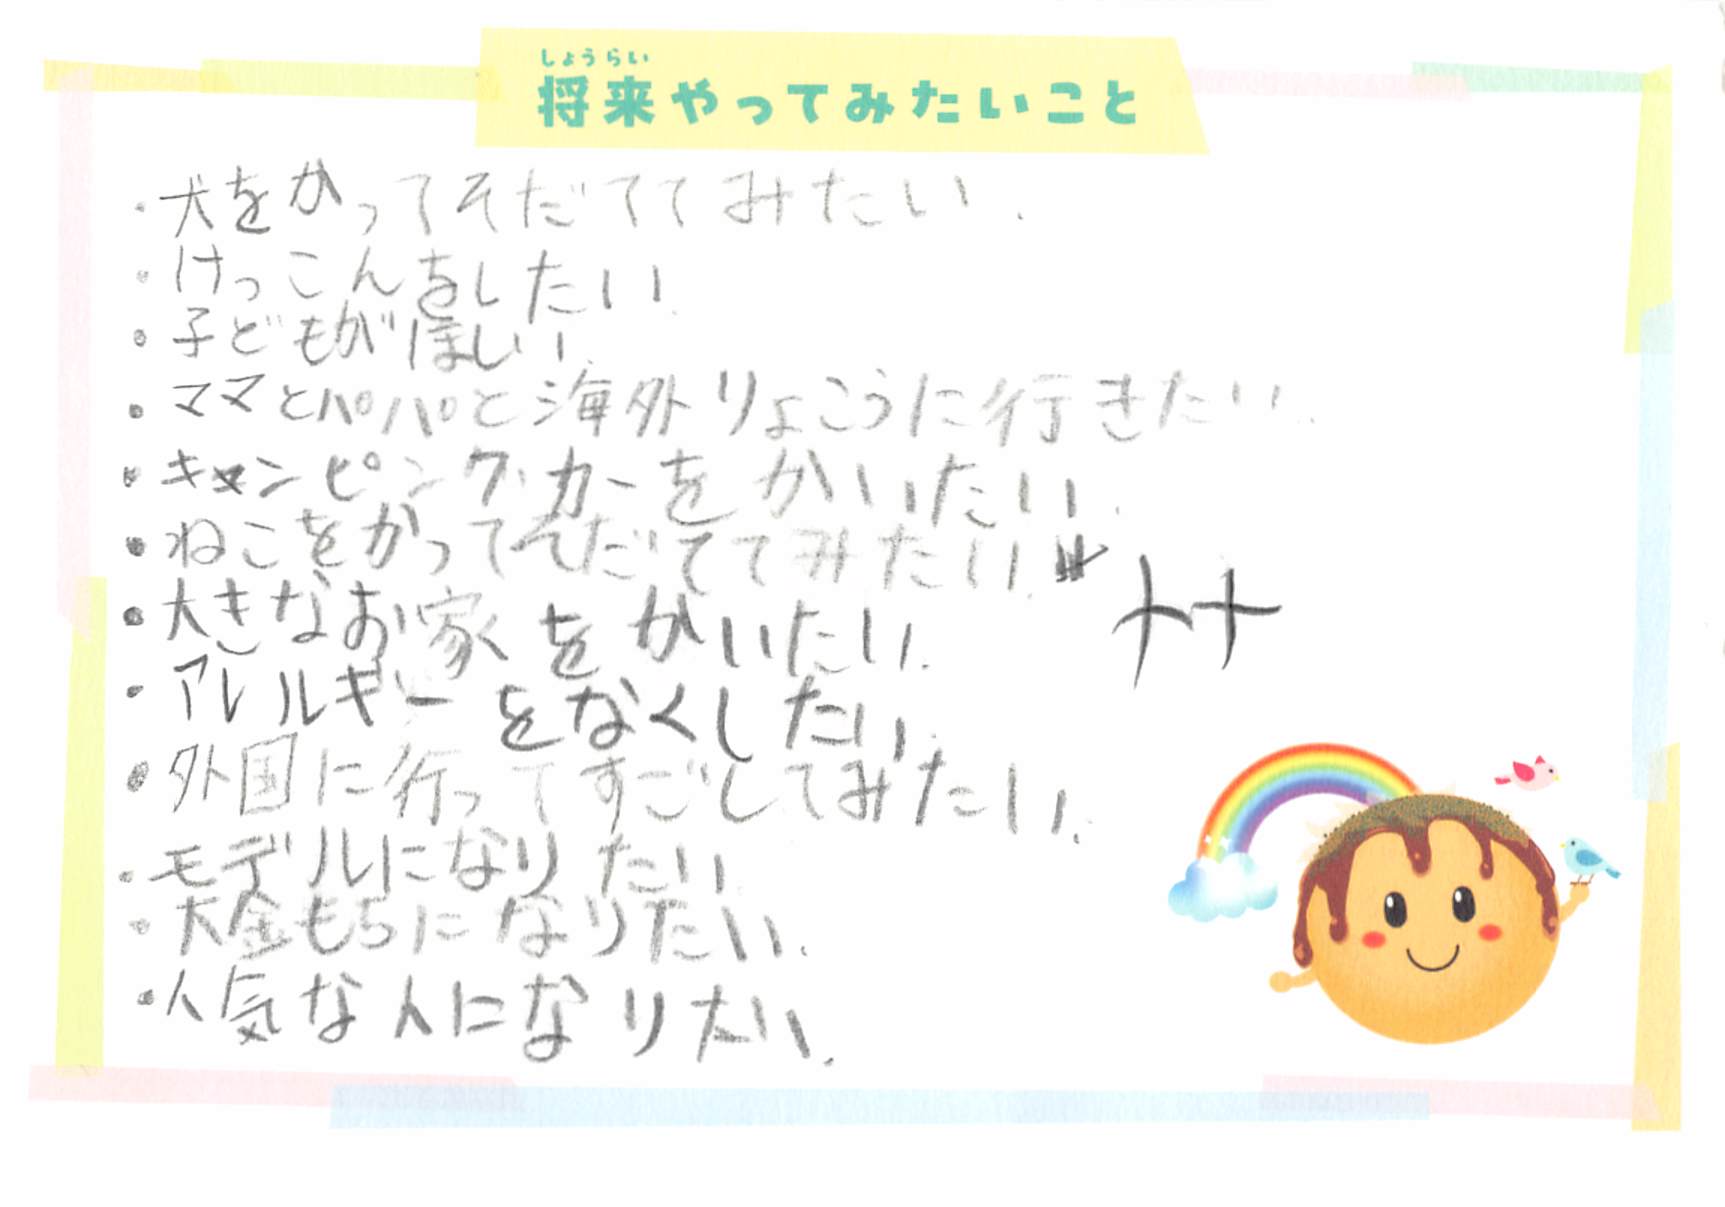 しょうらい
将来やってみたいこと
・犬をかってそだててみたい.
・けっこんをしたい.
・子どもがほしい.
・ママとパパと海外りょこうに行きたい.
・キャンピングカーをかいたい.
・ねこをかってそだててみたい.
・大きなお家をかいたい.
・アレルギーをなくしたい.
・外国に行ってすごしてみたい.
・モデルになりたい.
・大金もちになりたい.
・人気な人になりたい.